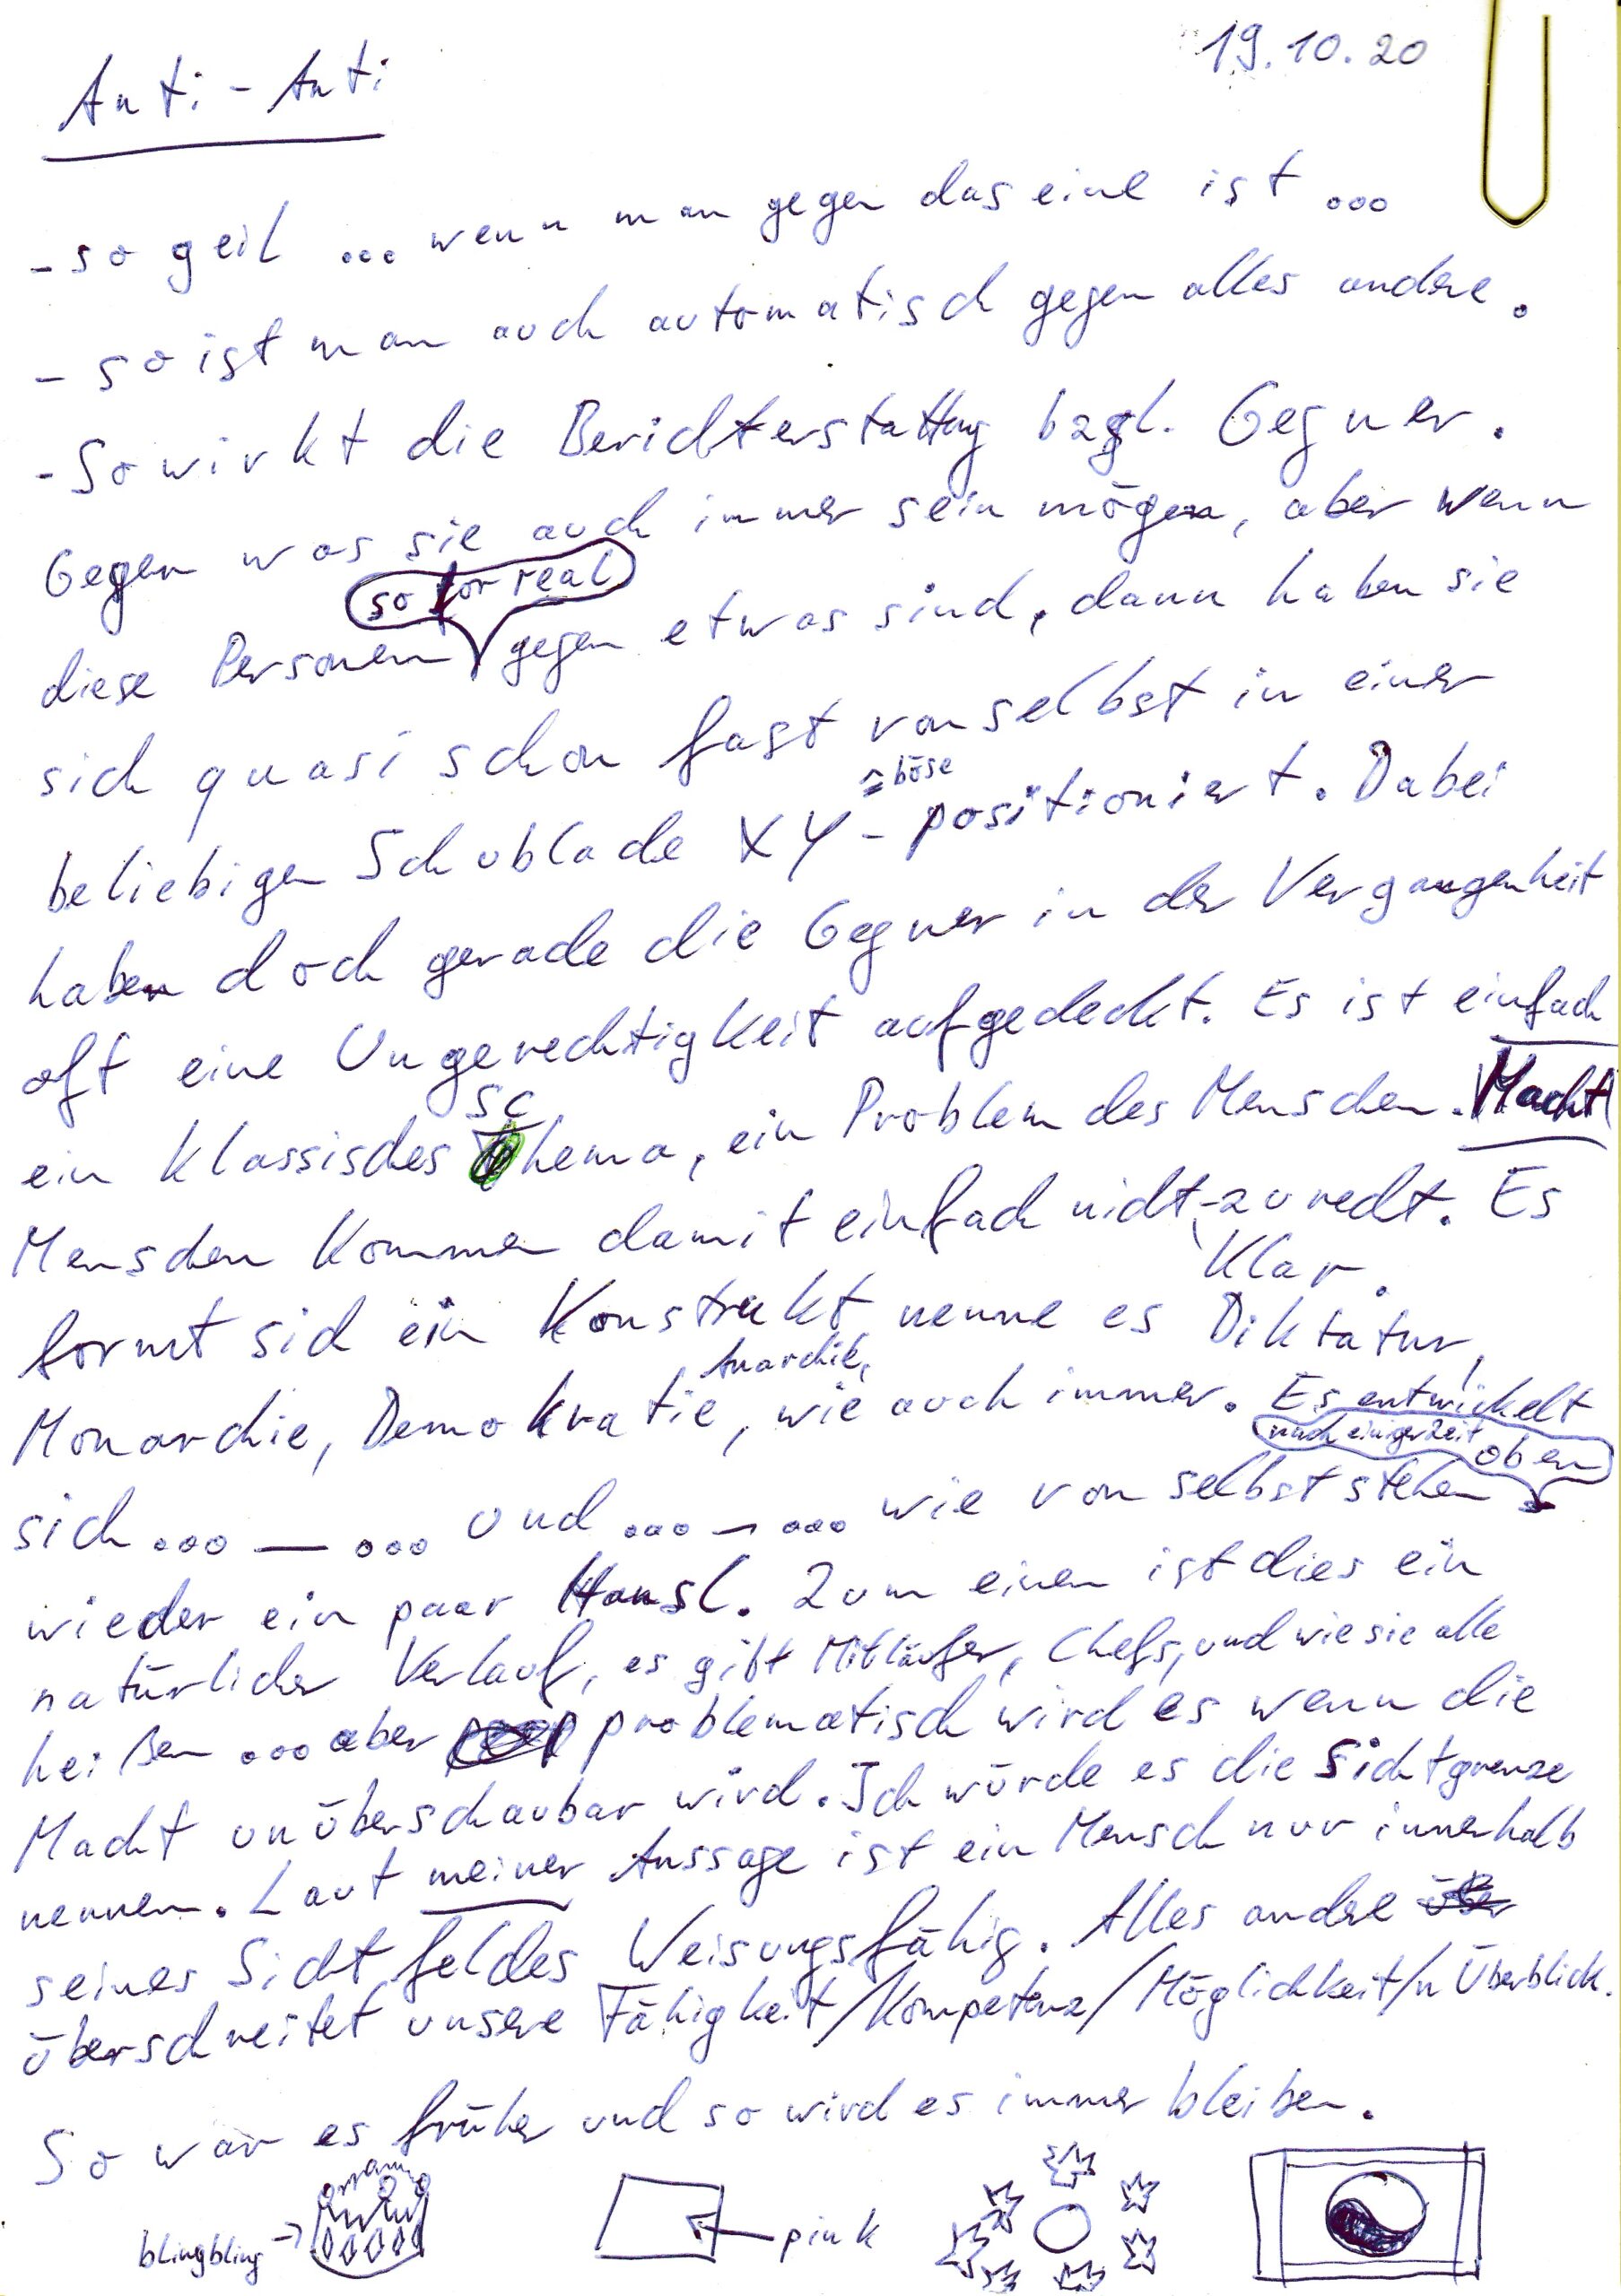 19.10.20
Anti-Anti
- so geil ... wenn man gegen das eine ist ...
- so ist man auch automatisch gegen alles andere.
- So wirkt die Berichterstattung bzgl. Gegner.
Gegen was sie auch immer sein mögen, aber wenn
so for real
diese Personen gegen etwas sind, dann haben sie
sich quasi schon fast von selbst in einer
≙ böse
beliebigen Schublade XY - positioniert. Dabei
haben doch gerade die Gegner in der Vergangenheit
oft eine Ungerechtigkeit aufgedeckt. Es ist einfach
sc
ein klassisches hema, ein Problem des Menschen. Macht
Menschen kommen damit einfach nicht - zurecht. Es
klar.
formt sich ein Konstrukt nenne es Diktatur,
Anarchie,
Monarchie, Demokratie, wie auch immer. Es entwickelt
nach einiger Zeit oben
sich ... — ... und ... — ... wie von selbst stehen
wieder ein paar Hansl. Zum einen ist dies ein
natürlicher Verlauf, es gibt Mitläufer, Chefs, und wie sie alle
heißen ... aber problematisch wird es wenn die
Macht unüberschaubar wird. Ich würde es die Sichtgrenze
nennen. Laut meiner Aussage ist ein Mensch nur innerhalb
seines Sichtfeldes Weisungsfähig. Alles andere über
überschreitet unsere Fähigkeit/Kompetenz/Möglichkeit/n Überblick.
So war es früher und so wird es immer bleiben.
blingbling
pink